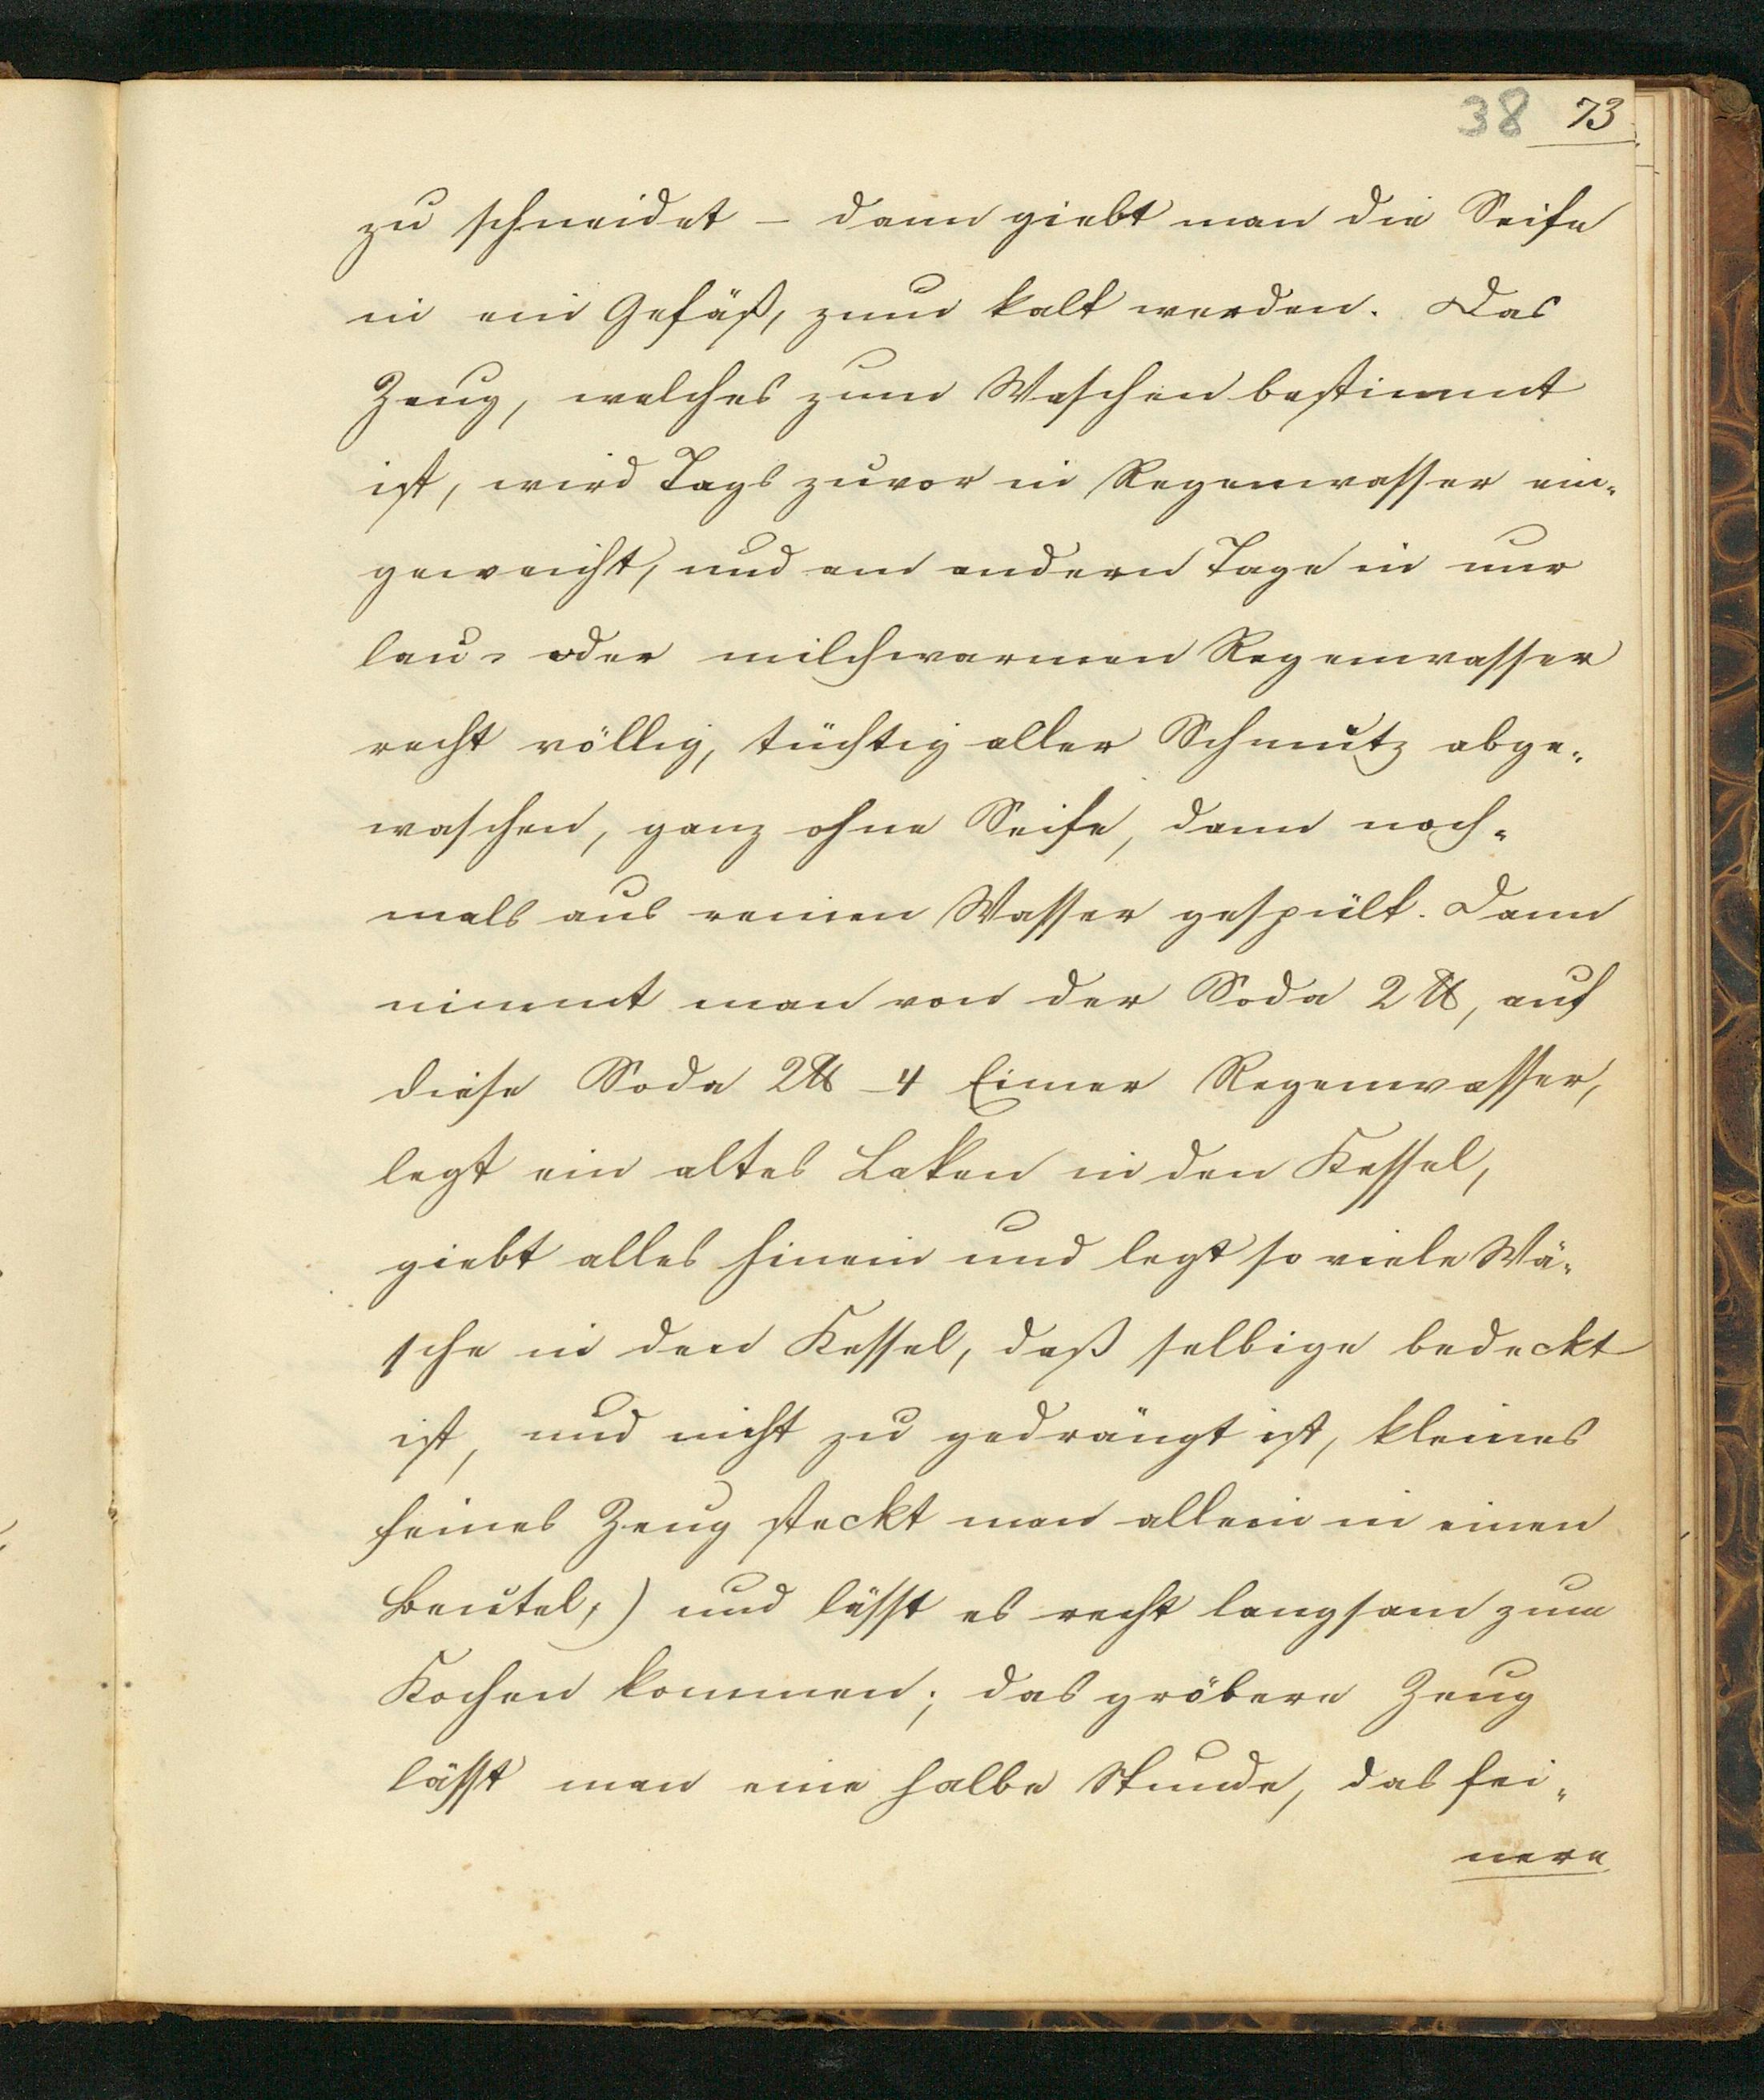 38 73
zu schneidet – dann giebt man die Seife
in ein Gefäß, zum kalt werden. Das
Zeug, welches zum Waschen bestimmt
ist, wird Tags zuvor in Regenwasser ein-
geweicht, und am andern Tage in nur
lau- oder milchwarmen Regenwasser
recht völlig, tüchtig aller Schmutz abge-
waschen, ganz ohne Seife, dann noch-
mals aus reinen Wasser gespült. Dann
nimmt man von der Soda 2 ℔, auf
diese Soda 2 ℔ – 4 Eimer Regenwasser,
legt ein altes Laken in den Kessel,
giebt alles hinein und legt so viele Wä-
sche in den Kessel, daß selbige bedeckt
ist, und nicht zu gedrängt ist, kleines
feines Zeug steckt man allein in einen
Beutel,) und lässt es recht langsam zum
Kochen kommen; das gröbere Zeug
lässt man eine halbe Stunde, das fei-
nere